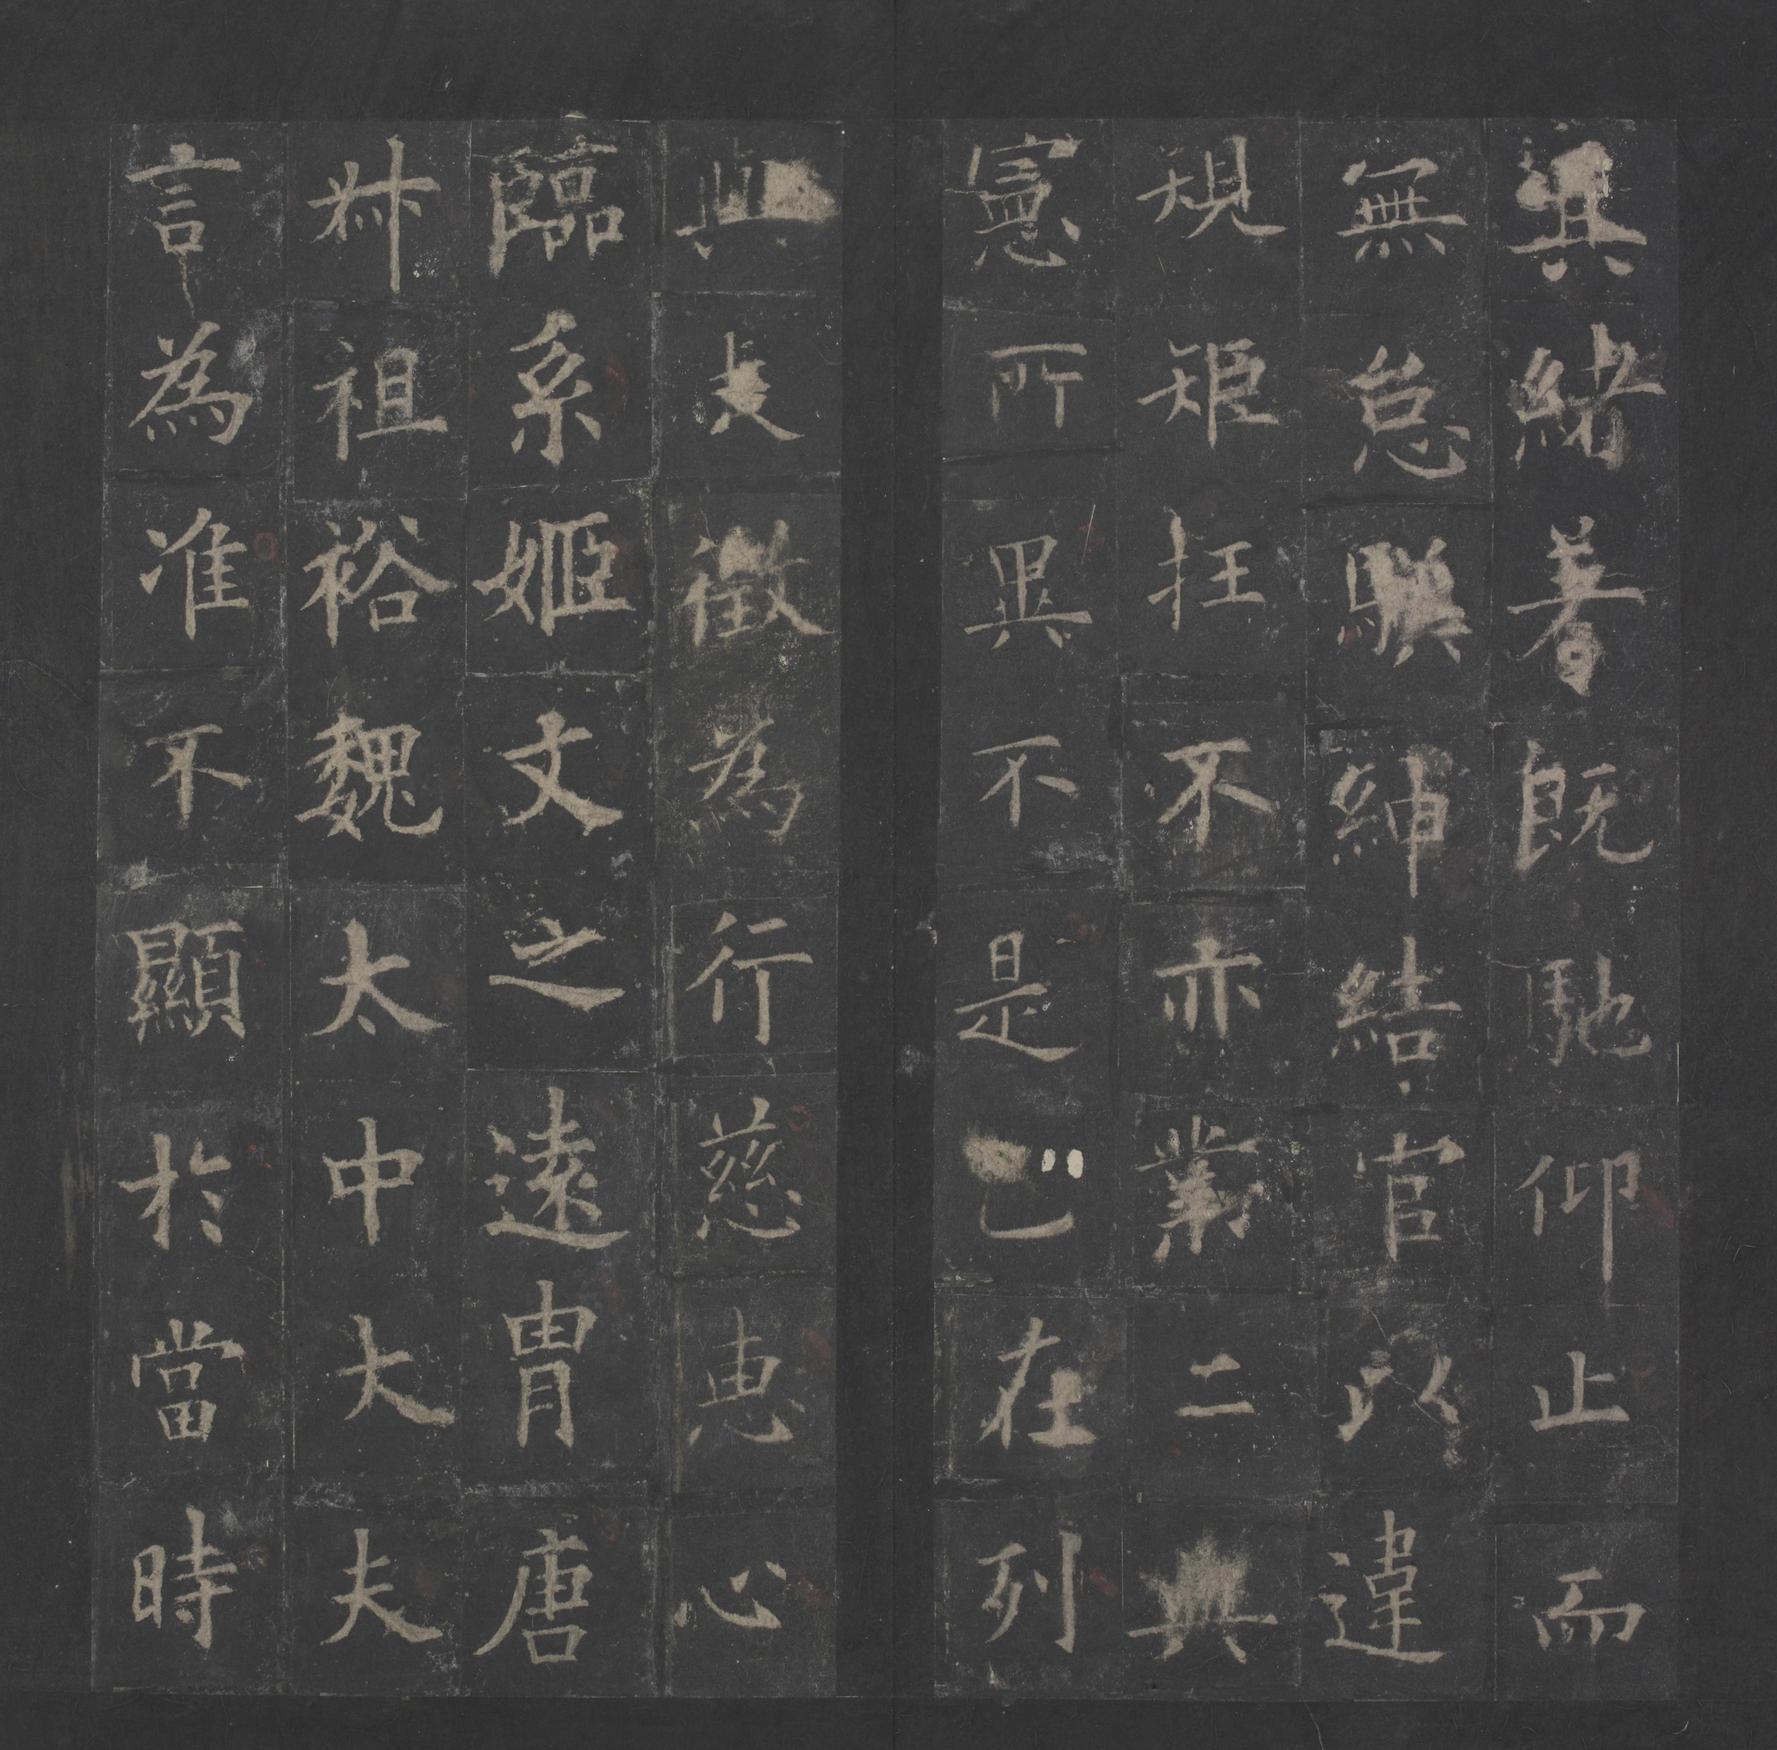 其緒著既馳仰止而
無怠紳結官以違
規矩抂不亦業二典
憲所異不是已在列
典徵為行慈恵心
臨系姬文之遠胄唐
叔祖裕魏太中大夫
言為准不顯於當時